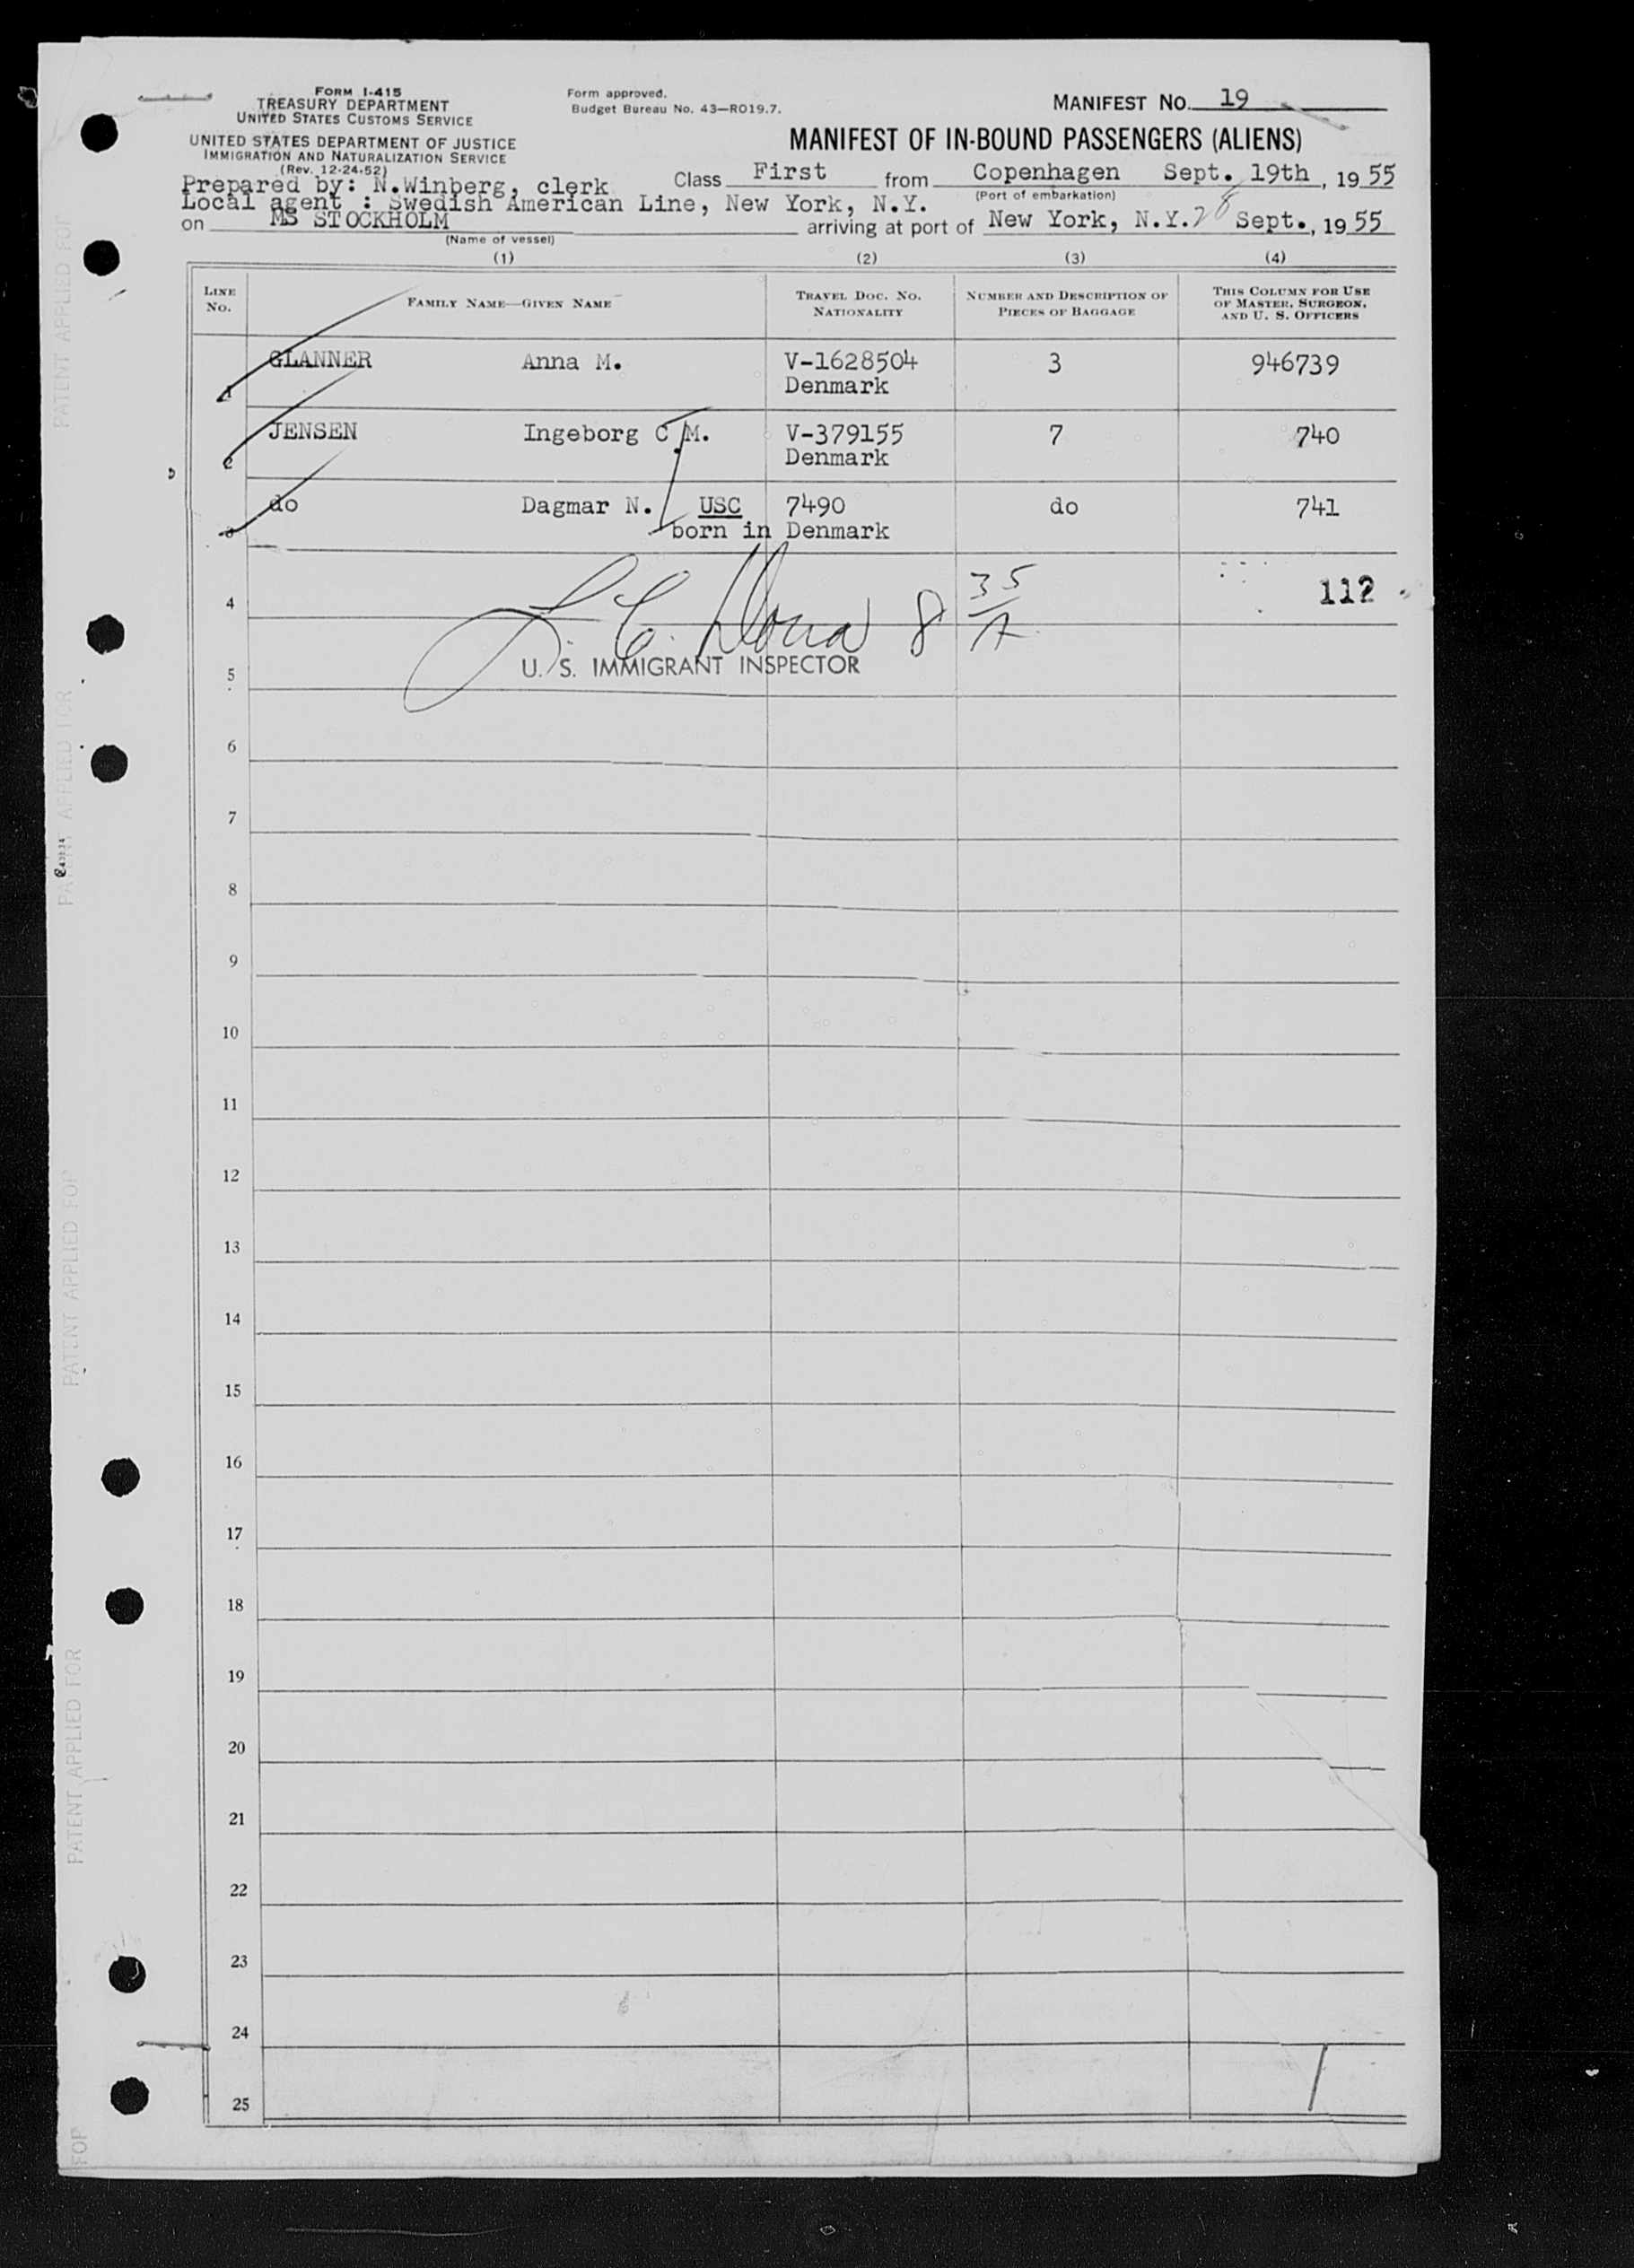 FORM I-415
TREASURY DEPARTMENT
UNITED STATES CUSTOMS SERVICE
UNITED STATES DEPARTMENT OF JUSTICE
IMMIGRATION AND NATURALIZATION SERVICE
(Rev. 12-24-52)
Form approved.
Budget Bureau No. 43—RO19.7.
MANIFEST No. 19
MANIFEST OF IN-BOUND PASSENGERS (ALIENS)
Prepared by: N.Winberg, clerk Class First from Copenhagen Sept. 19th, 1955
(Port of embarkation)
Local agent : Swedish American Line, New York, N.Y.
on MS STOCKHOLM arriving at port of New York, N.Y. 28 Sept., 1955
(Name of vessel)
(1) (2) (3) (4)
LINE No. FAMILY NAME—GIVEN NAME TRAVEL DOC. NO. NATIONALITY NUMBER AND DESCRIPTION OF PIECES OF BAGGAGE THIS COLUMN FOR USE OF MASTER, SURGEON, AND U. S. OFFICERS
1 GLANNER Anna M. V-1628504 3 946739
Denmark
2 JENSEN Ingeborg C M. V-379155 7 740
Denmark
3 do Dagmar N. USC 7490 do 741
born in Denmark
4 8 35/A 112
U. S. IMMIGRANT INSPECTOR
5
6
7
8
9
10
11
12
13
14
15
16
17
18
19
20
21
22
23
24
25
PATENT APPLIED FOR
PATENT APPLIED FOR
PATENT APPLIED FOR
PATENT APPLIED FOR
FOR